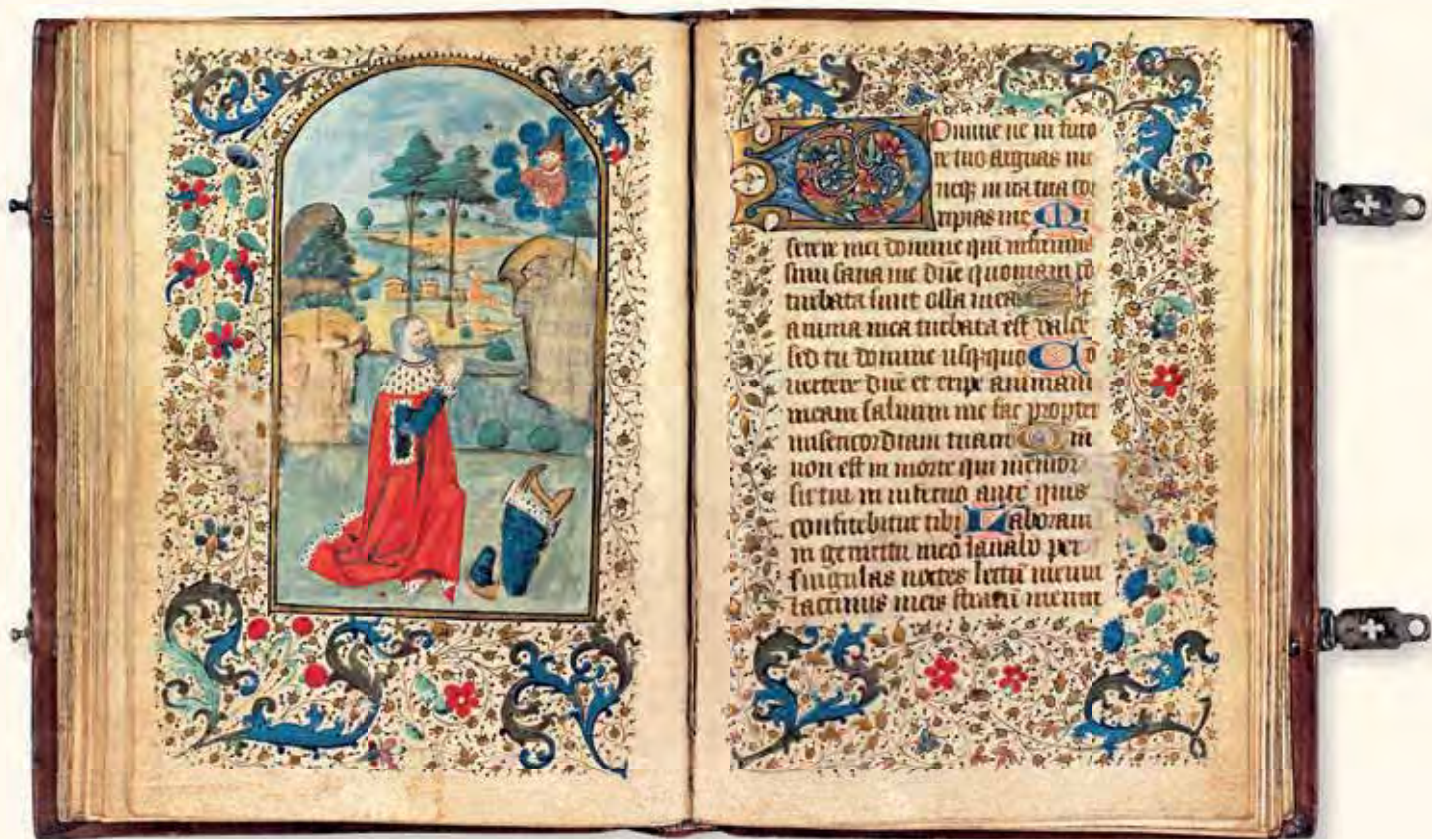 Domine ne in furo
re tuo arguas me
neqꝫ in ira tua cor
ripias me Mi
serere mei domine qm̄ infirmus
sum sana me dn̄e quoniam cō
turbata sunt ossa mea Et
anima mea turbata est valde
sed tu domine usqꝫquo Cō
uertere dn̄e et eripe animam
meam saluum me fac propter
misericordiam tuam Qm̄
non est in morte qui memor
sit tui in inferno aut quis
confitebitur tibi Laboraui
in gemitu meo lauabo per
singulas noctes lectū meum
lacrimis meis stratū meum